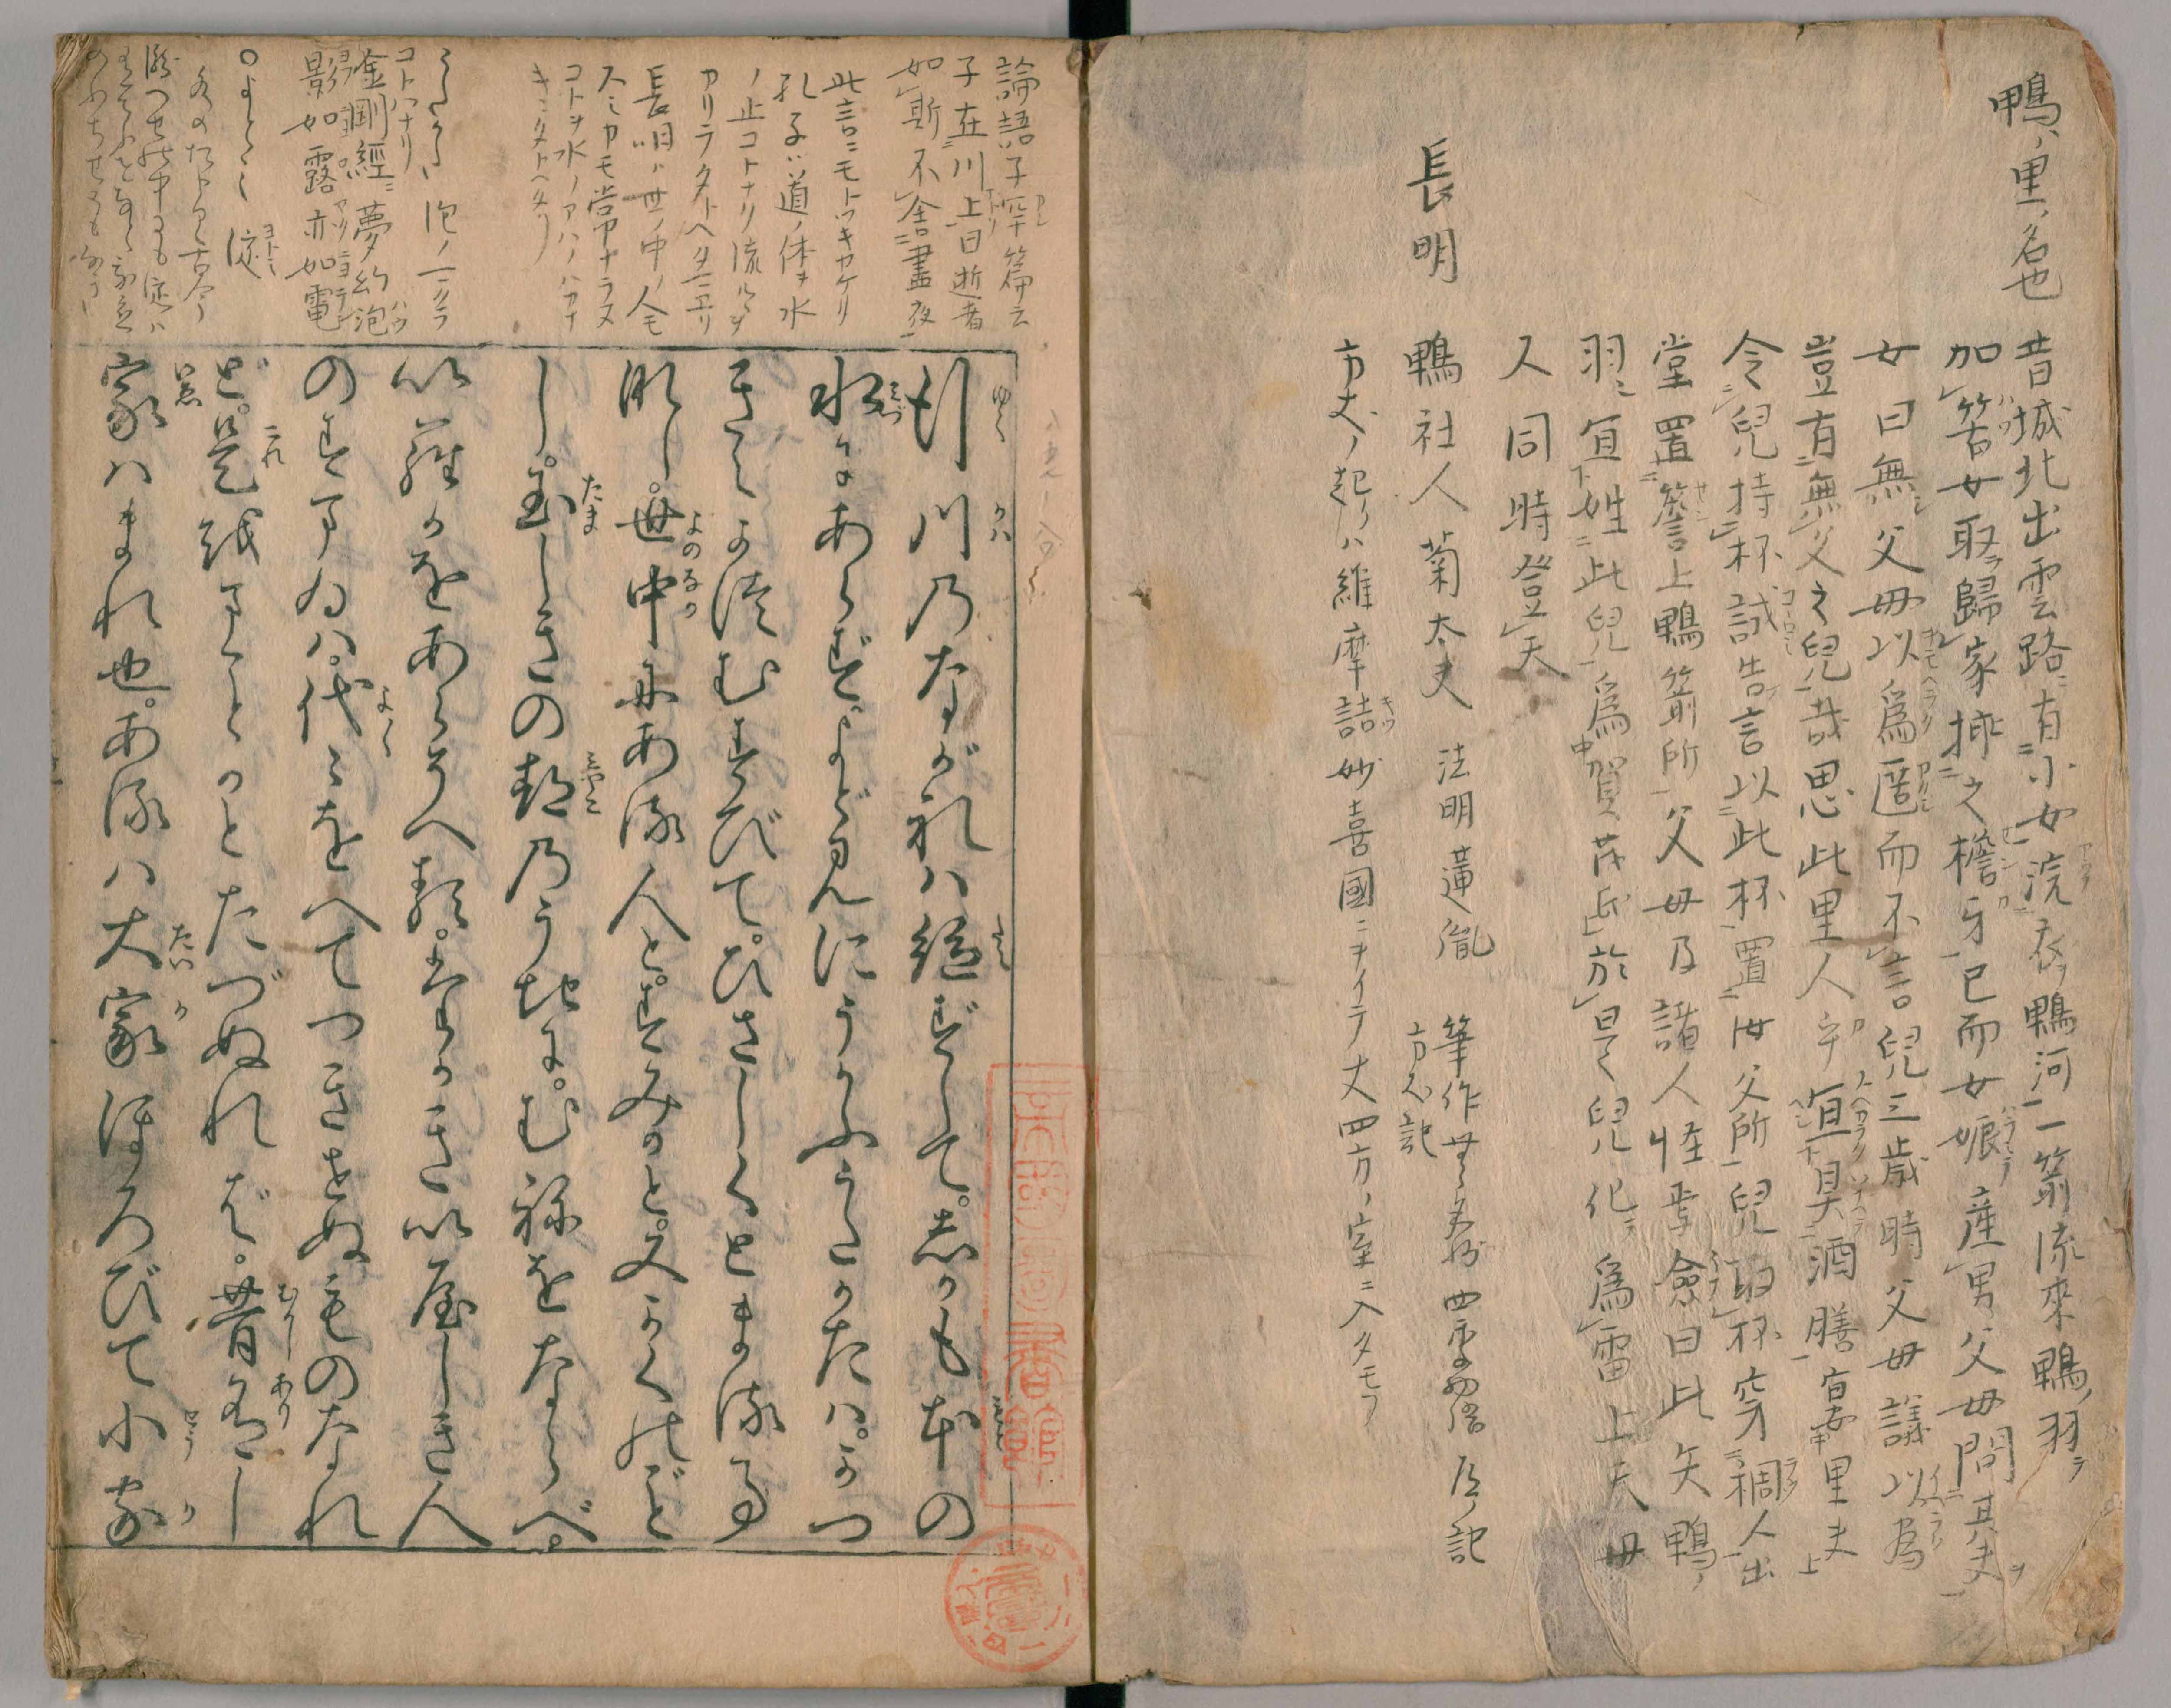 鴨ハ里ノ名也
昔城北出雲路ニ有二小女浣衣ヲ鴨河一一箭流來鴨ノ羽ヲ
加レ筈女取歸レ家挿二之檐牙一已而女娠産レ男父母問二其夫ヲ一
女曰無シ父母以爲匿而不レ言兒三歳時父母議以爲
豈有二無レ父之兒一哉思此里人乎宜下具二酒膳一宴中里夫上
令二兒持一レ杯試告言以二此杯一置二汝父所一兒取レ杯穿二稠人一出
堂置二簷上鴨箭所一父母及諸人怪レ焉僉曰此矢鴨ノ
羽ニ宜下姓二此兒一爲中賀茂氏上於レ是兒化爲レ雷上天母
人同時登レ天
長明
鴨社人菊太夫 法明蓮胤
方丈ノ起リハ維摩詰妙喜國ニヲイテ丈四方ノ室ニ入タモフ
論語子罕篇云
子在川上曰逝者
如斯不舍晝夜
此言ニモトツキカケリ
孔子ハ道ノ体ヲ水
ノ止コトナリ流ルヽヲ
カリテタトヘタマエリ
長明ハ世ノ中ノ人モ
スミカモ常ナラヌ
コトヲ水ノアハノハカナ
キニタトヘタリ
うたかたハ泡ノ一ツノ
コトハナリ
金剛經ニ夢幻泡
影如露亦如電
○よとミ 淀
行川のながれハ絶ずして。しかも本の
水にあらず。よどみにうかふうたかたハ。かつ
きえかつむすびて。ひさしくとまる事
なし。世中にある人と。すみかと。又かくのごと
し。玉しきの都のうちに。むねをならべ。
いらかをあらそへる。たかきいやしき人
のすまゐハ。代々をへてつきせぬものなれ
ど。是をまことかとたづぬれば。昔有し
家ハまれ也。あるハ大家ほろびて小家